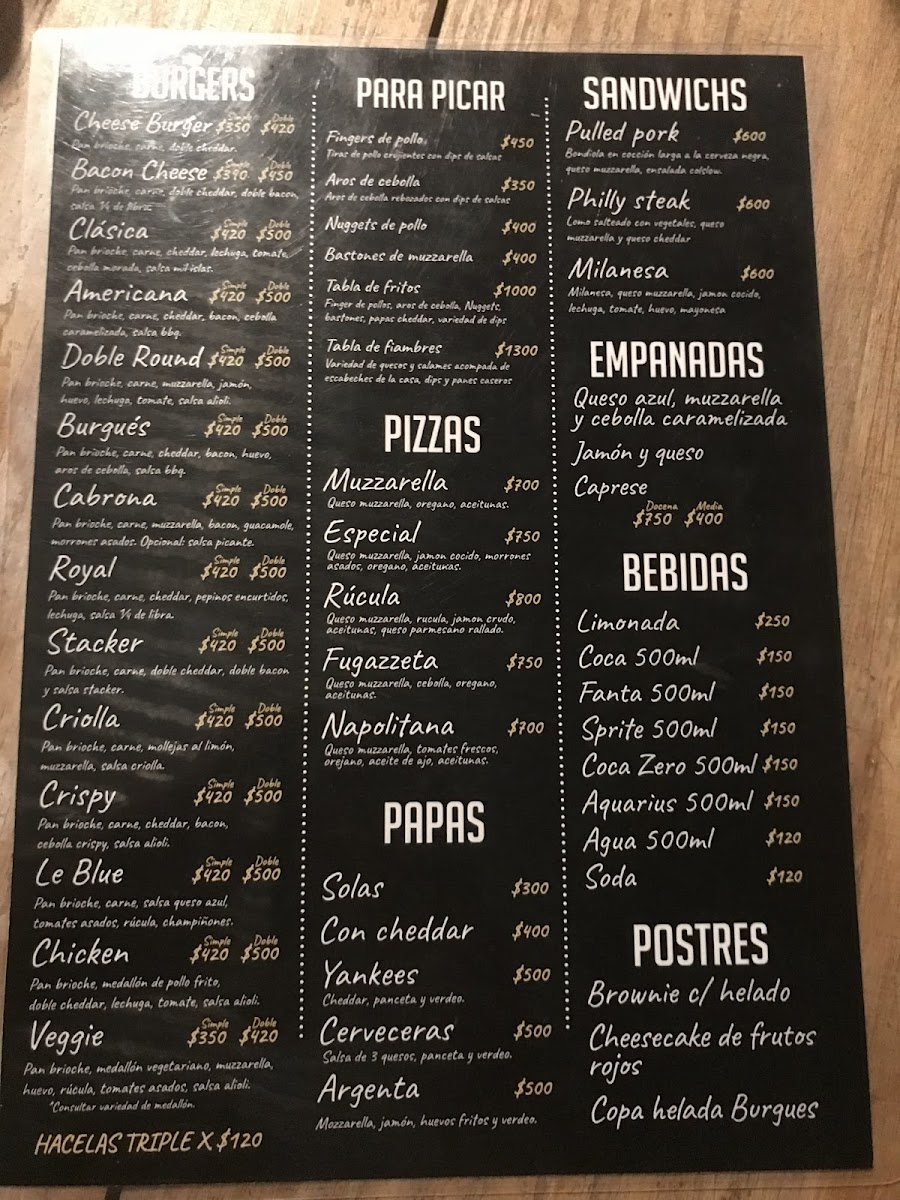 BURGERS
Cheese Burger Simple $350 Doble $420
Pan brioche, carne, doble cheddar.
Bacon Cheese Simple $390 Doble $450
Pan brioche, carne, doble cheddar, doble bacon,
salsa 1/4 de libra.
Clásica Simple $420 Doble $500
Pan brioche, carne, cheddar, lechuga, tomate,
cebolla morada, salsa mil islas.
Americana Simple $420 Doble $500
Pan brioche, carne, cheddar, bacon, cebolla
caramelizada, salsa bbq.
Doble Round Simple $420 Doble $500
Pan brioche, carne, muzzarella, jamón,
huevo, lechuga, tomate, salsa alioli.
Burgués Simple $420 Doble $500
Pan brioche, carne, cheddar, bacon, huevo,
aros de cebolla, salsa bbq.
Cabrona Simple $420 Doble $500
Pan brioche, carne, muzzarella, bacon, guacamole,
morrones asados. Opcional: salsa picante.
Royal Simple $420 Doble $500
Pan brioche, carne, cheddar, pepinos encurtidos,
lechuga, salsa 1/4 de libra.
Stacker Simple $420 Doble $500
Pan brioche, carne, doble cheddar, doble bacon
y salsa stacker.
Criolla Simple $420 Doble $500
Pan brioche, carne, mollejas al limón,
muzzarella, salsa criolla.
Crispy Simple $420 Doble $500
Pan brioche, carne, cheddar, bacon,
cebolla crispy, salsa alioli.
Le Blue Simple $420 Doble $500
Pan brioche, carne, salsa queso azul,
tomates asados, rúcula, champiñones.
Chicken Simple $420 Doble $500
Pan brioche, medallón de pollo frito,
doble cheddar, lechuga, tomate, salsa alioli.
Veggie Simple $350 Doble $420
Pan brioche, medallón vegetariano, muzzarella,
huevo, rúcula, tomates asados, salsa alioli.
*Consultar variedad de medallón.
HACELAS TRIPLE X $120
PARA PICAR
Fingers de pollo $450
Tiras de pollo crujientes con dips de salsas
Aros de cebolla $350
Aros de cebolla rebozados con dips de salsas
Nuggets de pollo $400
Bastones de muzzarella $400
Tabla de fritos $1000
Finger de pollos, aros de cebolla, Nuggets,
bastones, papas cheddar, variedad de dips
Tabla de fiambres $1300
Variedad de quesos y salames acompada de
escabeches de la casa, dips y panes caseros
PIZZAS
Muzzarella $700
Queso muzzarella, oregano, aceitunas.
Especial $750
Queso muzzarella, jamon cocido, morrones
asados, oregano, aceitunas.
Rúcula $800
Queso muzzarella, rucula, jamon crudo,
aceitunas, queso parmesano rallado.
Fugazzeta $750
Queso muzzarella, cebolla, oregano,
aceitunas.
Napolitana $700
Queso muzzarella, tomates frescos,
orejano, aceite de ajo, aceitunas.
PAPAS
Solas $300
Con cheddar $400
Yankees $500
Cheddar, panceta y verdeo.
Cerveceras $500
Salsa de 3 quesos, panceta y verdeo.
Argenta $500
Mozzarella, jamón, huevos fritos y verdeo.
SANDWICHS
Pulled pork $600
Bondiola en cocción larga a la cerveza negra,
queso muzzarella, ensalada colslow.
Philly steak $600
Lomo salteado con vegetales, queso
muzzarella y queso cheddar
Milanesa $600
Milanesa, queso muzzarella, jamon cocido,
lechuga, tomate, huevo, mayonesa
EMPANADAS
Queso azul, muzzarella
y cebolla caramelizada
Jamón y queso
Caprese
Docena $750 Media $400
BEBIDAS
Limonada $250
Coca 500ml $150
Fanta 500ml $150
Sprite 500ml $150
Coca Zero 500ml $150
Aquarius 500ml $150
Agua 500ml $120
Soda $120
POSTRES
Brownie c/ helado
Cheesecake de frutos
rojos
Copa helada Burgues